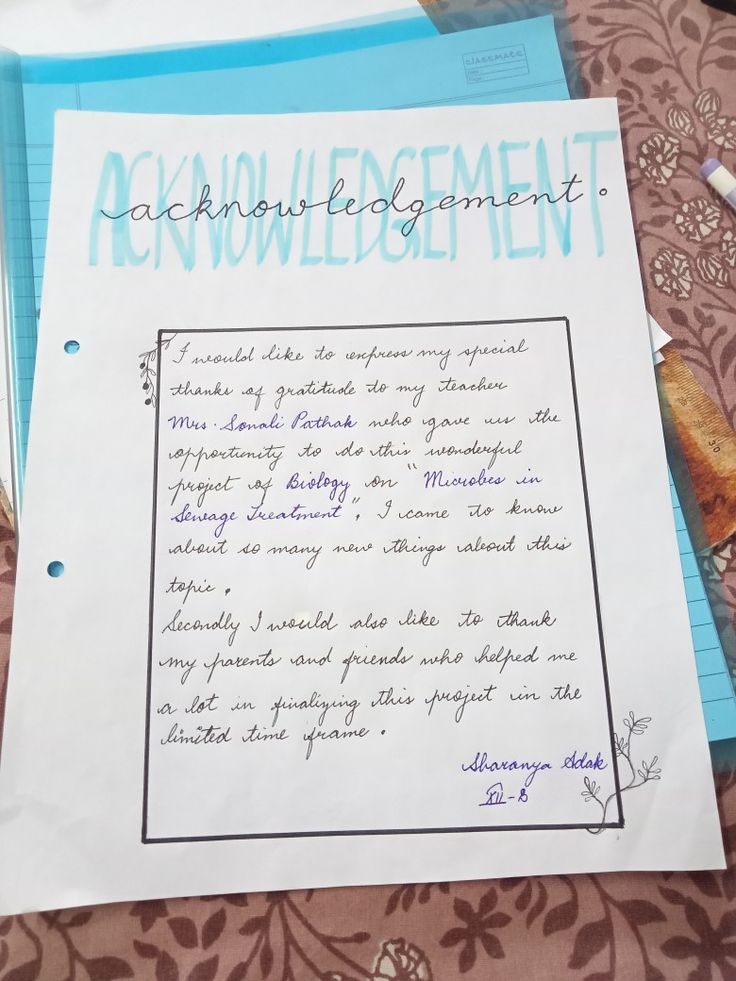 classmate
Date
Page
ACKNOWLEDGEMENT
acknowledgement.
I would like to express my special
thanks of gratitude to my teacher
Mrs. Sonali Pathak who gave us the
opportunity to do this wonderful
project of Biology on "Microbes in
Sewage Treatment", I came to know
about so many new things about this
topic.
Secondly I would also like to thank
my parents and friends who helped me
a lot in finalizing this project in the
limited time frame.
Sharanya Adak
XII-B
30